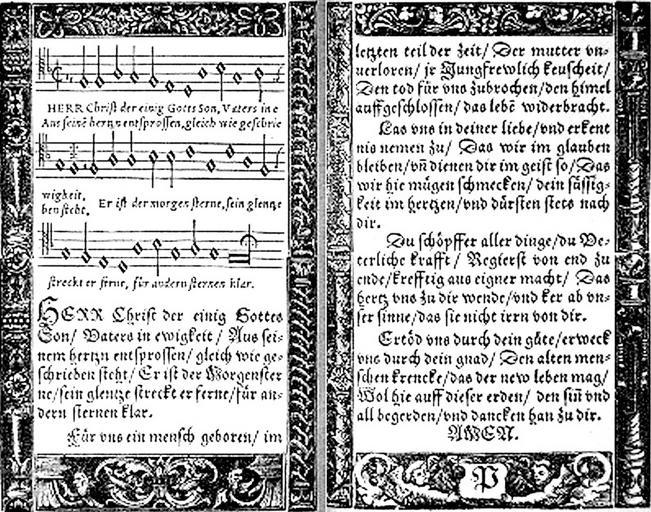 HERR Christ der einig Gotts Son, Vaters in e
Aus seinē hertzn entsprossen, gleich wie geschrie
wigkeit,
ben steht.
Er ist der morgen sterne, sein glentze
streckt er ferne, für andern sternen klar.
HERR Christ der einig Gottes
Son/ Vaters in ewigkeit/ Aus sei-
nem hertzn entsprossen/ gleich wie ge-
schrieben steht/ Er ist der Morgenster
ne/ sein glentze streckt er ferne/ für an-
dern sternen klar.
Für vns ein mensch geboren/ im
letzten teil der zeit/ Der mutter vn-
uerloren/ jr Jungfrewlich keuscheit/
Den tod für vns zubrochen/ den himel
auffgeschlossen/ das lebē widerbracht.
Las vns in deiner liebe/ vnd erkent
nis nemen zu/ Das wir im glauben
bleiben/ vn̄ dienen dir im geist so/ Das
wir hie mügen schmecken/ dein süssig-
keit im hertzen/ vnd dürsten stets nach
dir.
Du schöpffer aller dinge/ du Ve-
terliche krafft/ Regierst von end zu
ende/ krefftig aus eigner macht/ Das
hertz vns zu dir wende/ vnd ker ab vn-
ser sinne/ das sie nicht irrn von dir.
Ertöd vns durch dein güte/ erweck
vns durch dein gnad/ Den alten men-
schen krencke/ das der new leben mag/
Wol hie auff dieser erden/ den sin̄ vnd
all begerden/ vnd dancken han zu dir.
AMEN.
P